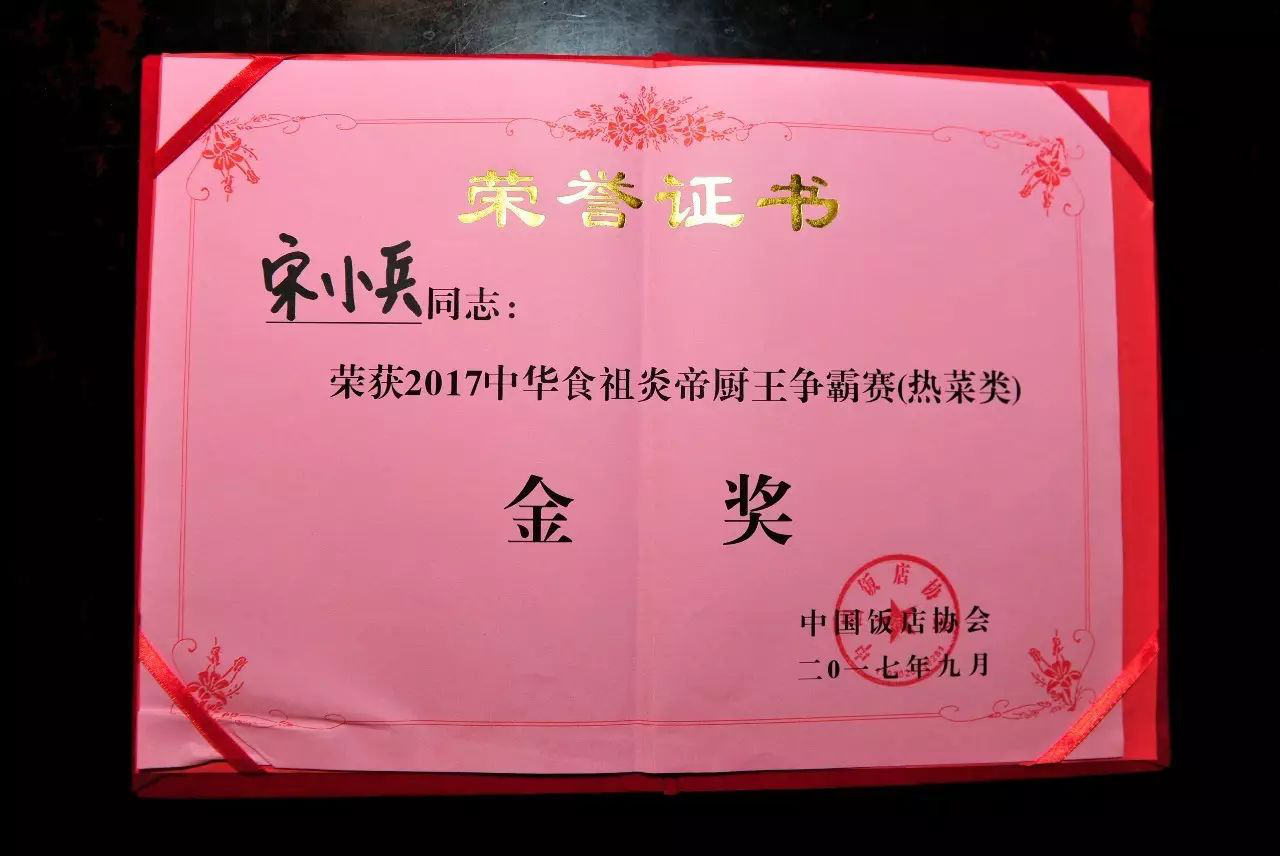 荣誉证书
宋小兵同志：
荣获2017中华食祖炎帝厨王争霸赛(热菜类)
金奖
中国饭店协会
二0一七年九月